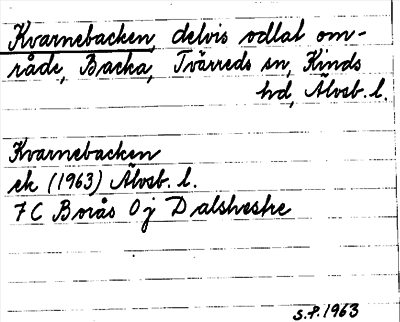 Kvarnebacken, delvis odlat om-
råde, Backa, Tvärreds sn, Kinds
hd, Älvsb. l.
Kvarnebacken
ek (1963) Älvsb. l.
7 C Borås 0 j Dalshestre
S.P. 1963